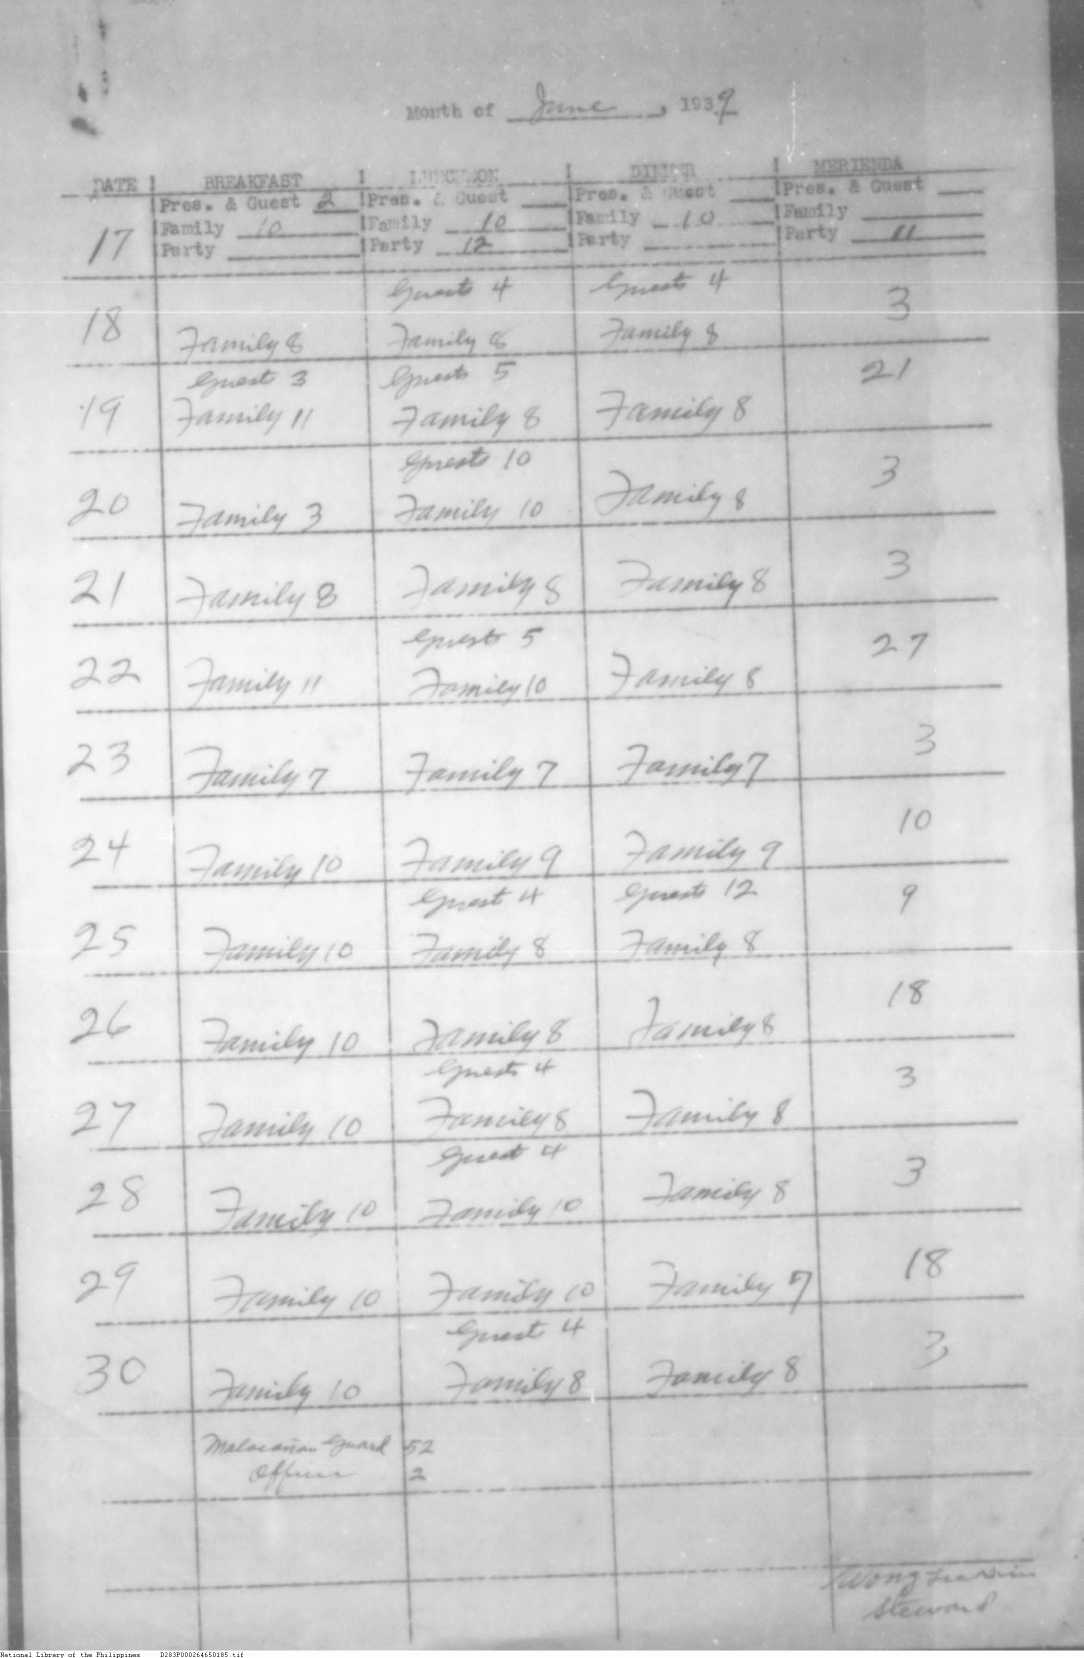 Month of June, 1939
DATE | BREAKFAST | LUNCHEON | DINNER | MERIENDA
Pres. & Guest 2 | Pres. & Guest | Pres. & Guest | Pres. & Guest
17 | Family 10 | Family 10 | Family 10 | Family
Party | Party 12 | Party | Party 11
Guests 4 Guests 4 3
18 Family 8 Family 8 Family 8
Guest 3 Guests 5 21
19 Family 11 Family 8 Family 8
Guests 10 3
20 Family 3 Family 10 Family 8
21 Family 8 Family 8 Family 8 3
Guests 5 27
22 Family 11 Family 10 Family 8
23 Family 7 Family 7 Family 7 3
24 Family 10 Family 9 Family 9 10
Guest 4 Guests 12 9
25 Family 10 Family 8 Family 8
26 Family 10 Family 8 Family 8 18
Guests 4 3
27 Family 10 Family 8 Family 8
Guest 4 3
28 Family 10 Family 10 Family 8
29 Family 10 Family 10 Family 7 18
Guest 4 3
30 Family 10 Family 8 Family 8
Malacañan Guard 52
Officer 2
Wong
Steward
National Library of the Philippines D283P000264650185.tif